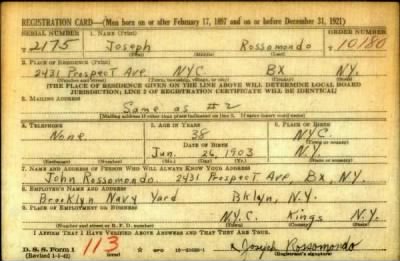 REGISTRATION CARD—(Men born on or after February 17, 1897 and on or before December 31, 1921)
SERIAL NUMBER 1. NAME (Print) ORDER NUMBER
T 2175 Joseph Rossomondo T 10180
(First) (Middle) (Last)
2. PLACE OF RESIDENCE (Print)
2431 Prospect Ave. NYC BX N.Y.
(Number and street) (Town, township, village, or city) (County) (State)
[THE PLACE OF RESIDENCE GIVEN ON THE LINE ABOVE WILL DETERMINE LOCAL BOARD
JURISDICTION; LINE 2 OF REGISTRATION CERTIFICATE WILL BE IDENTICAL]
3. MAILING ADDRESS
Same as #2
[Mailing address if other than place indicated on line 2. If same insert word same]
4. TELEPHONE 5. AGE IN YEARS 6. PLACE OF BIRTH
None 38 N.Y.C.
DATE OF BIRTH
Jun. 26, 1903 N.Y.
(Exchange) (Number) (Mo.) (Day) (Yr.) (State or country)
7. NAME AND ADDRESS OF PERSON WHO WILL ALWAYS KNOW YOUR ADDRESS
John Rossomondo. 2431 Prospect Ave, Bx, N.Y.
8. EMPLOYER'S NAME AND ADDRESS
Brooklyn Navy Yard Bklyn, N.Y.
9. PLACE OF EMPLOYMENT OR BUSINESS
N.Y.C. Kings N.Y.
(Number and street or R. F. D. number) (Town) (County) (State)
I AFFIRM THAT I HAVE VERIFIED ABOVE ANSWERS AND THAT THEY ARE TRUE.
D. S. S. Form 1 113 GPO Joseph Rossomondo
(Revised 1-1-42) (over) (Registrant's signature)